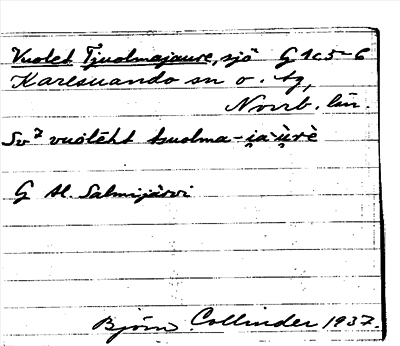 Vuolet Tjuolmajaure, sjö G 1c5-6
Karesuando sn o. tg,
Norrb. län.
Sv² vuòlēht tsuolma-ja-ùrè
G Al. Salmijärvi
Björn Collinder 1937.